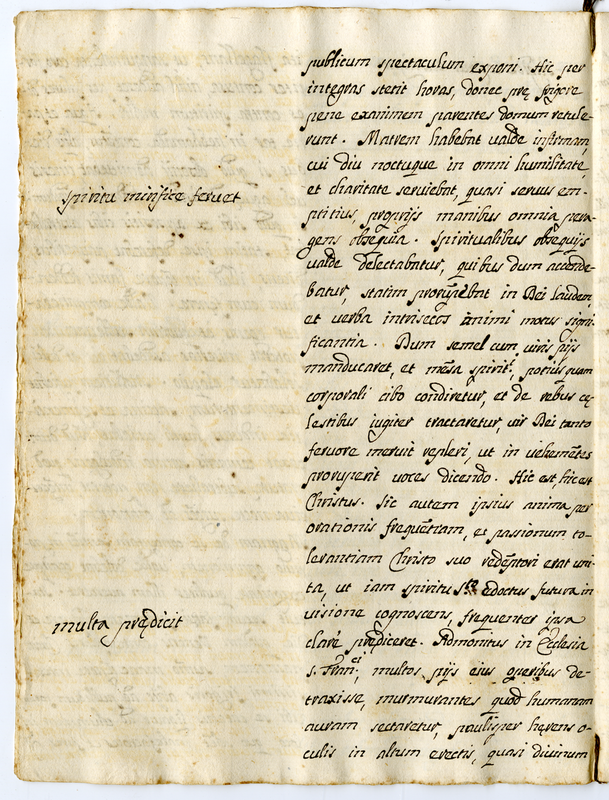 publicum spectaculum exponi. Hic per
integras stetit horas, donec prę frigore
pene exanimem parentes domum retule-
runt. Matrem habebat valde infirmam,
cui diu noctuque in omni humilitate
et charitate seruiebat, quasi seruus em-
spiritu mirifice feruet
ptitius, proprijs manibus omnia pera-
gens obsequia. Spiritualibus obsequijs
valde delectabatur, quibus dum accende-
batur, statim prorũpebat in Dei laudem,
et uerba intrisecos animi motus signi-
ficantia. Dum semel cum uiris pijs
manducaret, et mẽsa spirit., potius quam
corporali cibo condiretur, et de rebus cę-
lestibus iugiter tractaretur, uir Dei tanto
feruore meruit repleri, ut in uehemẽtes
proruperit uoces dicendo. Hic est, hic est
Christus. Sic autem ipsius anima per
orationis frequẽtiam, et passionum to-
lerantiam Christo suo redẽptori erat uni-
ta, ut iam spiritu edoctus futura in
uisione cognoscens, frequenter ipsa
multa prędicit
clarè prędiceret. Admonitus in Ecclesia
s. Fran.ci, multos pijs eius operibus de-
traxisse, murmurantes quod humanam
auram sectaretur, paulisper hęrens o-
culis in altum erectis, quasi diuinum